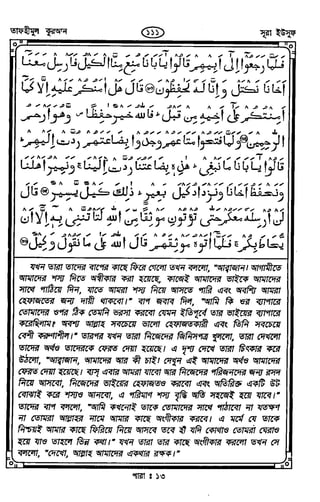 তাফহীমুল কুরআন
১১১
সূরা ইউসুফ
فَلَمَّا رَجَعُوْٓا اِلٰٓى اَبِيْهِمْ قَالُوْا يٰٓاَبَانَا مُنِعَ مِنَّا الْكَيْلُ فَاَرْسِلْ مَعَنَآ
اَخَانَا نَكْتَلْ وَاِنَّا لَهٗ لَحٰفِظُوْنَ ۞ قَالَ هَلْ اٰمَنُكُمْ عَلَيْهِ اِلَّا كَمَآ
اَمِنْتُكُمْ عَلٰٓى اَخِيْهِ مِنْ قَبْلُ ۚ فَاللّٰهُ خَيْرٌ حٰفِظًا ۪ وَّهُوَ اَرْحَمُ
الرّٰحِمِيْنَ ۞ وَلَمَّا فَتَحُوْا مَتَاعَهُمْ وَجَدُوْا بِضَاعَتَهُمْ رُدَّتْ اِلَيْهِمْ ۚ
قَالُوْا يٰٓاَبَانَا مَا نَبْغِيْ ۚ هٰذِهٖ بِضَاعَتُنَا رُدَّتْ اِلَيْنَا ۚ وَنَمِيْرُ اَهْلَنَا
وَنَحْفَظُ اَخَانَا وَنَزْدَادُ كَيْلَ بَعِيْرٍ ۚ ذٰلِكَ كَيْلٌ يَّسِيْرٌ ۞ قَالَ
لَنْ اُرْسِلَهٗ مَعَكُمْ حَتّٰى تُؤْتُوْنِ مَوْثِقًا مِّنَ اللّٰهِ لَتَاْتُنَّنِيْ بِهٖٓ اِلَّآ اَنْ
يُّحَاطَ بِكُمْ ۚ فَلَمَّآ اٰتَوْهُ مَوْثِقَهُمْ قَالَ اللّٰهُ عَلٰى مَا نَقُوْلُ وَكِيْلٌ ۞
যখন তারা তাদের বাপের কাছে ফিরে গেলো তখন বললো, "আব্বাজান! আগামীতে
আমাদের শস্য দিতে অস্বীকার করা হয়েছে, কাজেই আমাদের ভাইকে আমাদের
সাথে পাঠিয়ে দিন, যাতে আমরা শস্য নিয়ে আসতে পারি এবং অবশ্যি আমরা
হেফাজতের জন্য দায়ী থাকবো।" বাপ জবাব দিল, "আমি কি ওর ব্যাপারে
তোমাদের ওপর ঠিক তেমনি ভরসা করবো যেমন ইতিপূর্বে তার ভাইয়ের ব্যাপারে
করেছিলাম? অবশ্য আল্লাহ সবচেয়ে ভালো হেফাজতকারী এবং তিনি সবচেয়ে
বেশী করুণাশীল।" তারপর যখন তারা নিজেদের জিনিসপত্র খুললো, তারা দেখলো
তাদের অর্থও তাদেরকে ফেরত দেয়া হয়েছে। এ দৃশ্য দেখে তারা চিৎকার করে
উঠলো, "আব্বাজান, আমাদের আর কী চাই! দেখুন এই আমাদের অর্থও আমাদের
ফেরত দেয়া হয়েছে। ব্যস্ এবার আমরা যাবো আর নিজেদের পরিজনদের জন্য রসদ
নিয়ে আসবো, নিজেদের ভাইয়ের হেফাজতও করবো এবং অতিরিক্ত একটি উট
বোঝাই করে শস্যও আনবো, এ পরিমাণ শস্য বৃদ্ধি অতি সহজেই হয়ে যাবে।"
তাদের বাপ বললো, "আমি কখনোই তাকে তোমাদের সাথে পাঠাবো না যতক্ষণ
না তোমরা আল্লাহর নামে আমার কাছে অংগীকার করবে। এ মর্মে যে তাকে
নিশ্চয়ই আমার কাছে ফিরিয়ে নিয়ে আসবে তবে হাঁ যদি কোথাও তোমরা ঘেরাও
হয়ে যাও তাহলে ভিন্ন কথা।" যখন তারা তার কাছে অংগীকার করলো তখন সে
বললো, "দেখো, আল্লাহ আমাদের একথার রক্ষক।"
পারা : ১৩